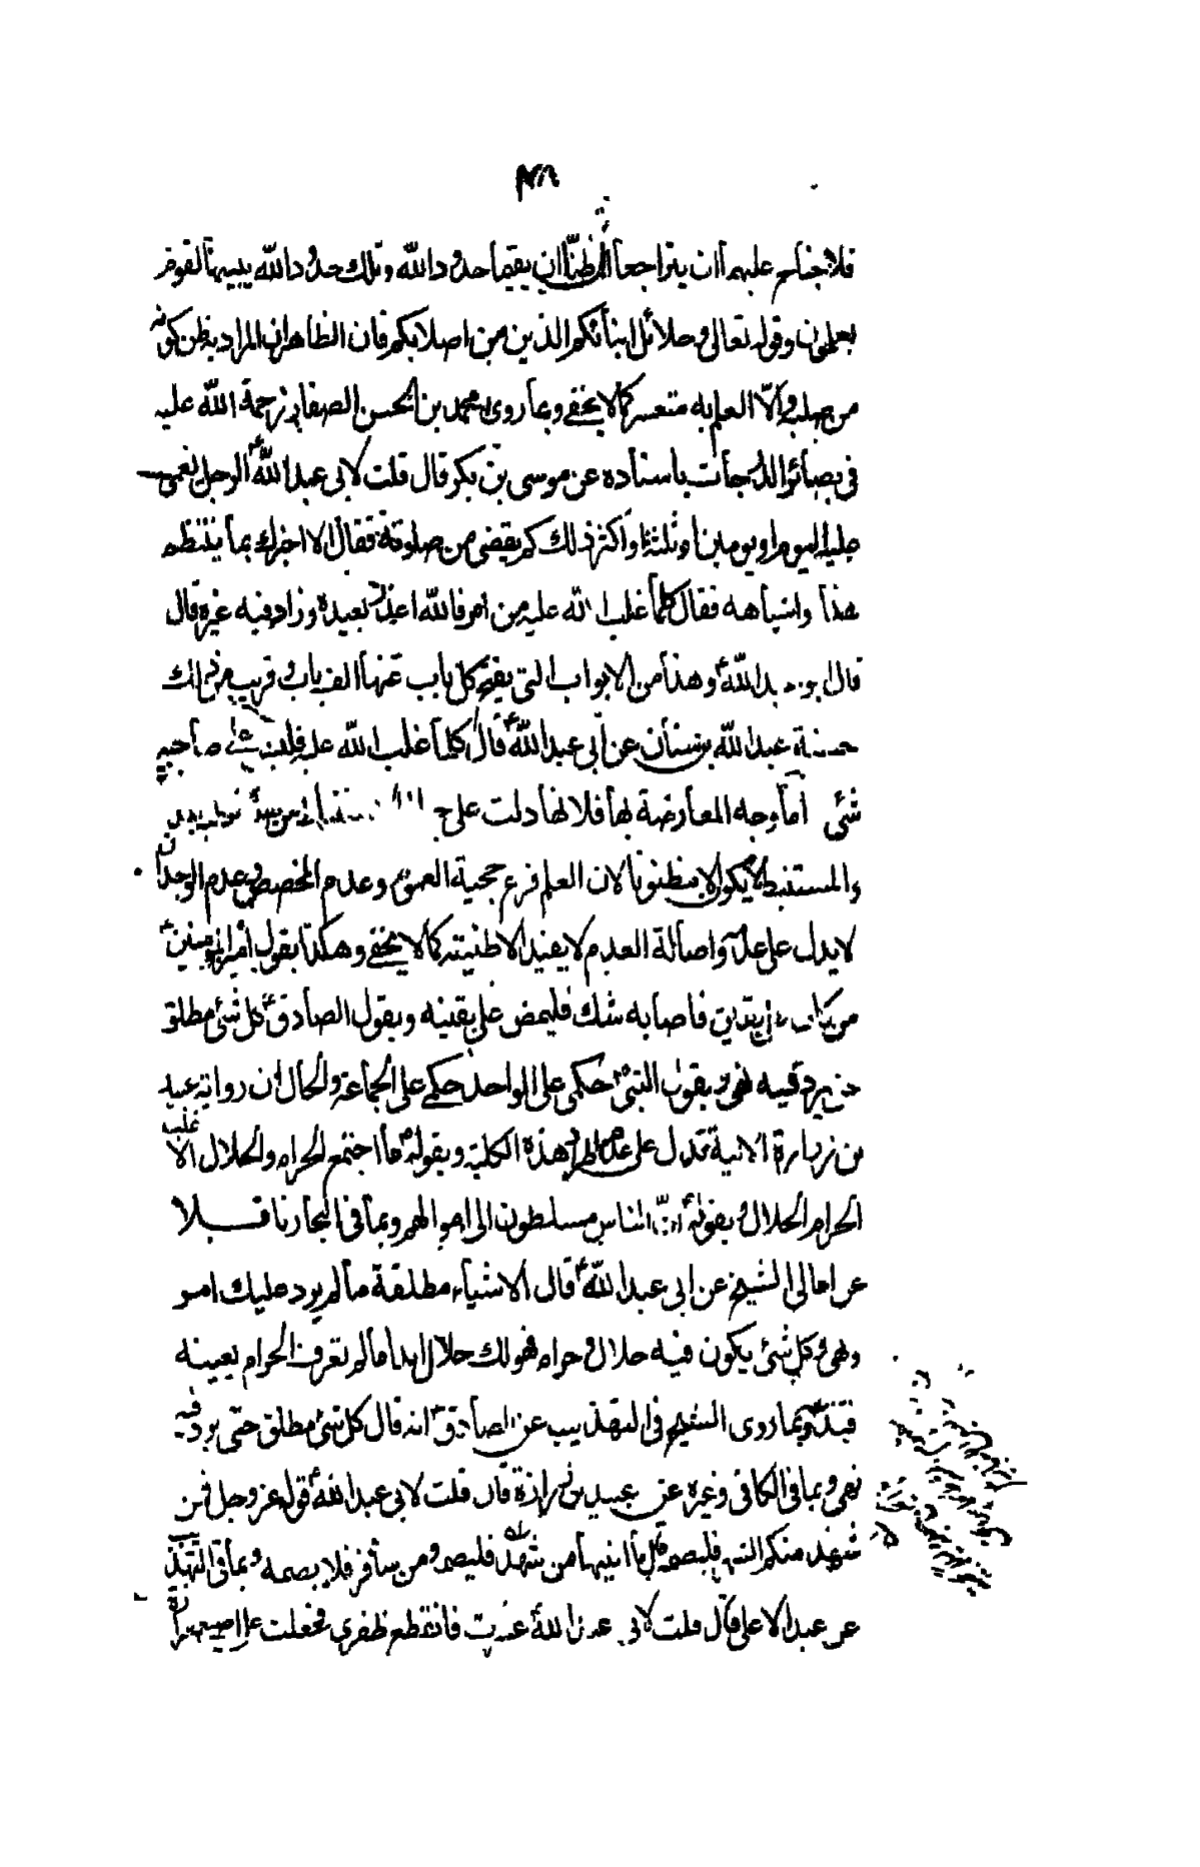 ٣٧٨
فلا جناح عليهما ان يتراجعا ان ظنا ان يقيما حدود الله وتلك حدود الله يبينها لقوم
يعلمون وقوله تعالى وحلائل ابنائكم الذين من اصلابكم فان الظاهر ان المراد بظن كونه
من صلبه والّا العلم به متعسر كما لا يخفى وبما روى محمد بن الحسن الصفار رحمة الله عليه
فى بصائر الدرجات باسناده عن موسى بن بكر قال قلت لابى عبد الله ع الرجل يغمى
عليه اليوم او يومين او ثلثة او اكثر ذلك كم يقضى من صلوته فقال الا اخبرك بما ينتظم
هذا واشباهه فقال كلما غلب الله عليه من امر فالله اعذر لعبده وزاد فيه غيره قال
قال ابو عبد الله ع وهذا من الابواب التى يفتح كل باب منها الف باب وقريب من ذلك
حسنة عبد الله بن سنان عن ابى عبد الله ع قال كلما غلب الله عليه فليس على صاحبه
شئ اما وجه المعارضة بها فلانها دلت على
والمستنبط لا يكون الا مظنونا لان العلم فرع حجية العموم وعدم المخصص وعدم الوجدان
لا يدل على عدمه واصالة العدم لا يفيد الا ظنيته كما لا يخفى وهكذا بقول امير المؤمنين ع
من كان على يقين فاصابه شك فليمض على يقينه وبقول الصادق ع كل شئ مطلق
حتى يرد فيه نهى وبقول النبى ص حكمى على الواحد حكمى على الجماعة والحال ان رواية عبيد
بن زرارة الاتية تدل على عدم اطراد هذه الكلية وبقوله ص ما اجتمع الحرام والحلال الا غلب
الحرام الحلال وبقوله ص ان الناس مسلطون الى اموالهم وبما فى البحار ناقلا
عن امالى الشيخ عن ابى عبد الله ع قال الاشياء مطلقة ما لم يرد عليك امر
ونهى وكل شئ يكون فيه حلال وحرام فهو لك حلال ابدا ما لم تعرف الحرام بعينه
فتدعه وبما روى الشيخ فى التهذيب عن الصادق ع انه قال كل شئ مطلق حتى يرد فيه
نهى وبما فى الكافى وغيره عن عبيد بن زرارة قال قلت لابى عبد الله ع قوله عز وجل فمن
شهد منكم الشهر فليصمه قال ما ابينها من شهد فليصمه ومن سافر فلا يصمه وبما فى التهذيب
عن عبد الاعلى قال قلت لابى عبد الله ع عثرت فانقطع ظفرى فجعلت على اصبعى مرارة